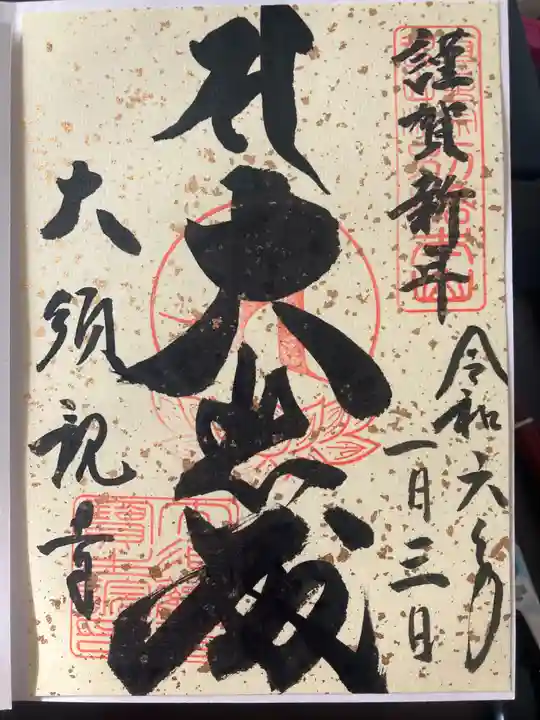 謹賀新年
令和六年
一月三日
大悲殿
大須観音